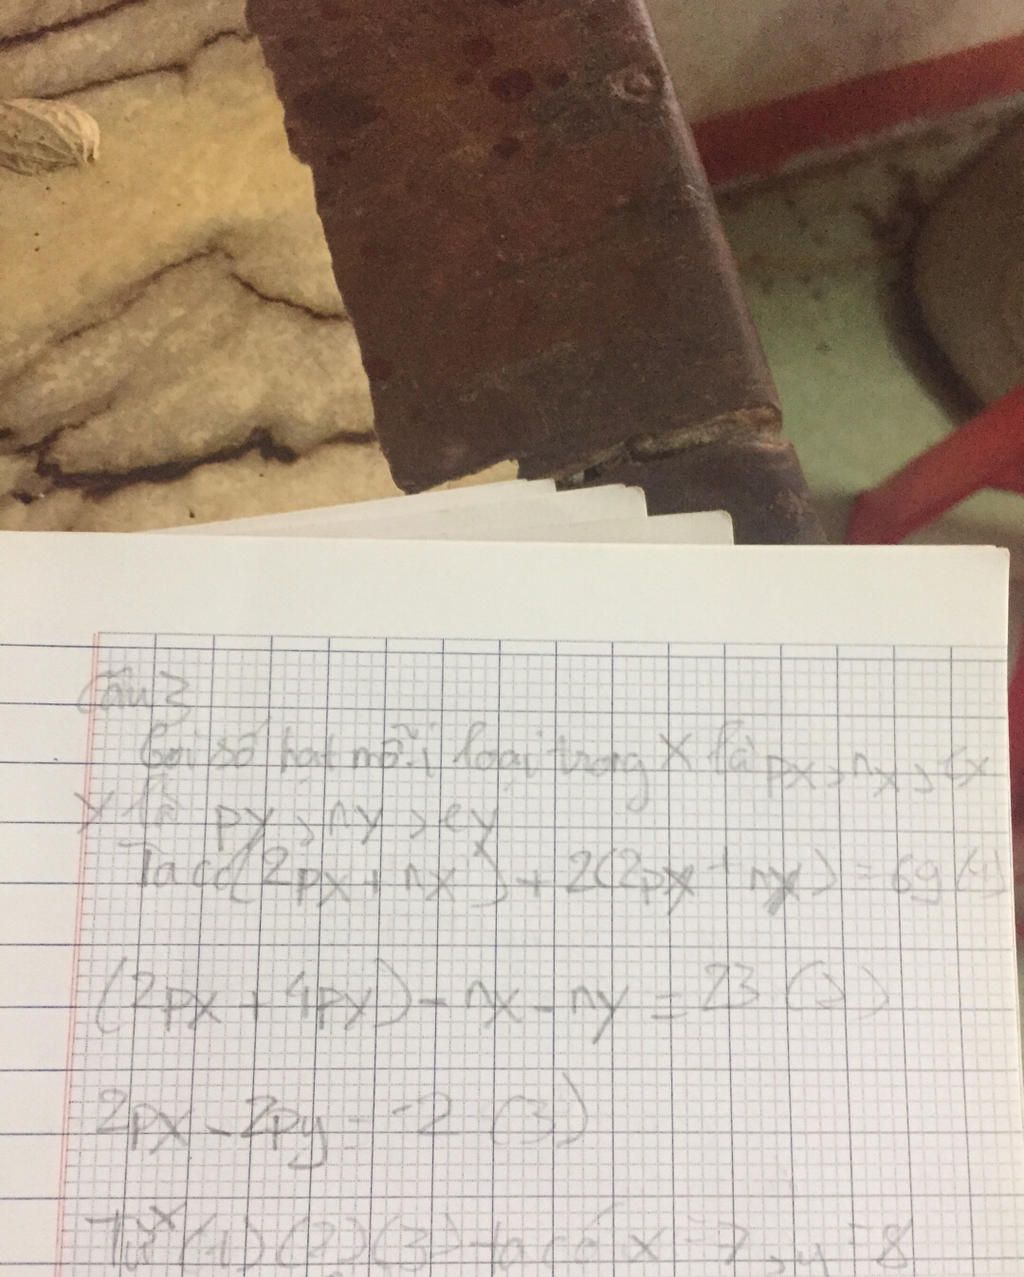 Câu 3
Gọi số hạt mỗi loại trong X là px, nx, ex
Y là py, ny, ey
Ta có (2px + nx) + 2(2py + ny) = 69 (1)
(2px + 4py) - nx - ny = 23 (2)
2px - 2py = -2 (3)
Từ (1) (2) (3) ta có x = 7, y = 8